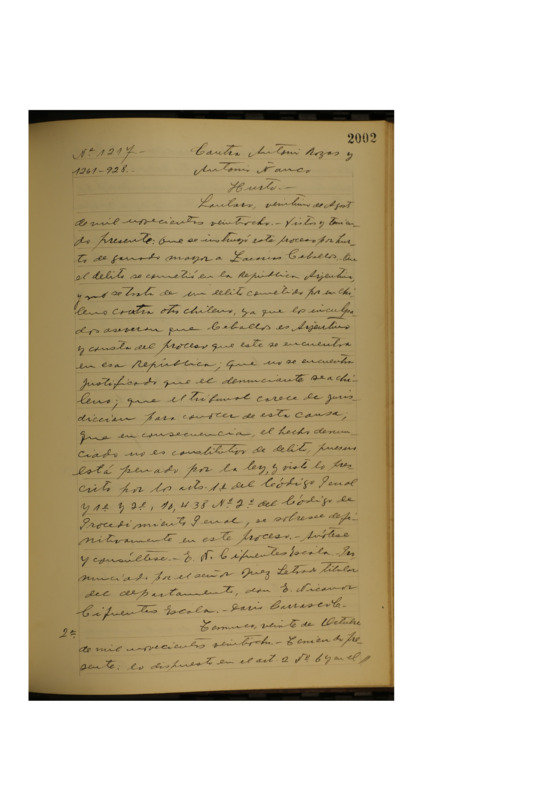 2002
Nº 1217.- Contra Antonio Rozas y
1261-928.. Antonio Ñanco
Hurto.-
Lautaro, veintiuno de Agosto
de mil novecientos veintiocho.- Vistos y tenien-
do presente: Que se instruyó este proceso por hur-
to de ganado mayor a Ceballos. Que
el delito se cometió en la República Argentina,
y no se trata de un delito cometido por un chi-
leno contra otro chileno, ya que los inculpa-
dos aseveran que Ceballos es Argentino
y consta del proceso que este se encuentra
en esa República; Que no se encuentra
justificado que el denunciante sea chi-
leno; que el tribunal carece de juris-
dicción para conocer de esta causa;
que en consecuencia, el hecho denun-
ciado no es constitutivo de delito,
está penado por la ley, y visto lo pres-
crito por los arts. 1º del Código Penal
y 1º y 2º, 10, 438 Nº 2º del Código de
Procedimiento Penal, se sobresee defi-
nitivamente en este proceso.- Anótese
y consúltese.- E. N. Cifuentes Escala.- Pro-
nunciado por el señor Juez Letrado titular
del departamento, don E. Nicanor
Cifuentes Escala.- Darío Carrasco
2º Temuco, veinte de Octubre
de mil novecientos veintiocho.- Teniendo pre-
sente: lo dispuesto en el art. 2 y en el